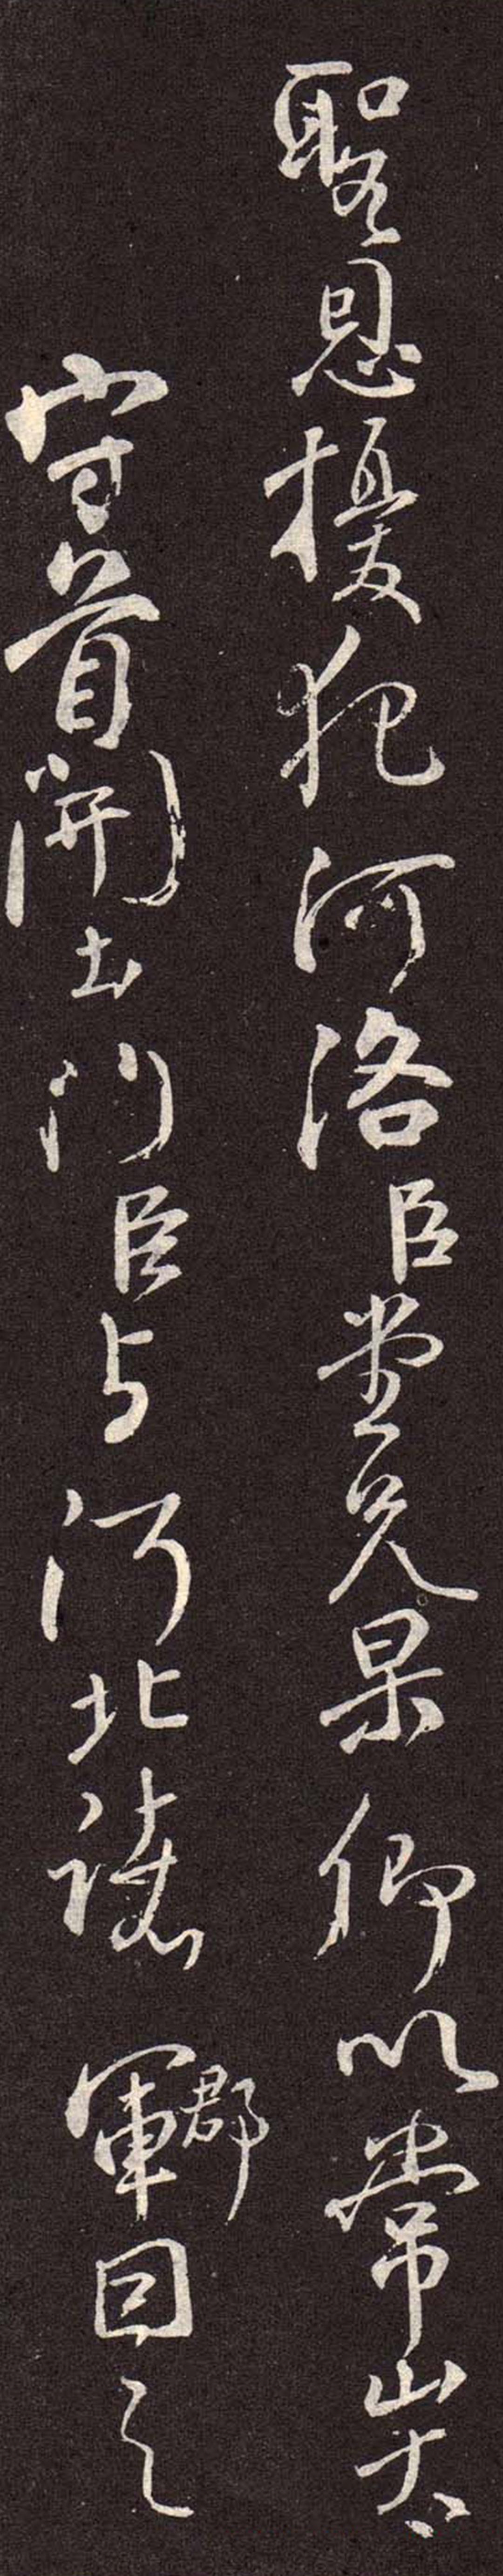 聖恩擾犯河洛臣堂兄杲卿以常山太
守首開土門臣与河北諸軍郡因之